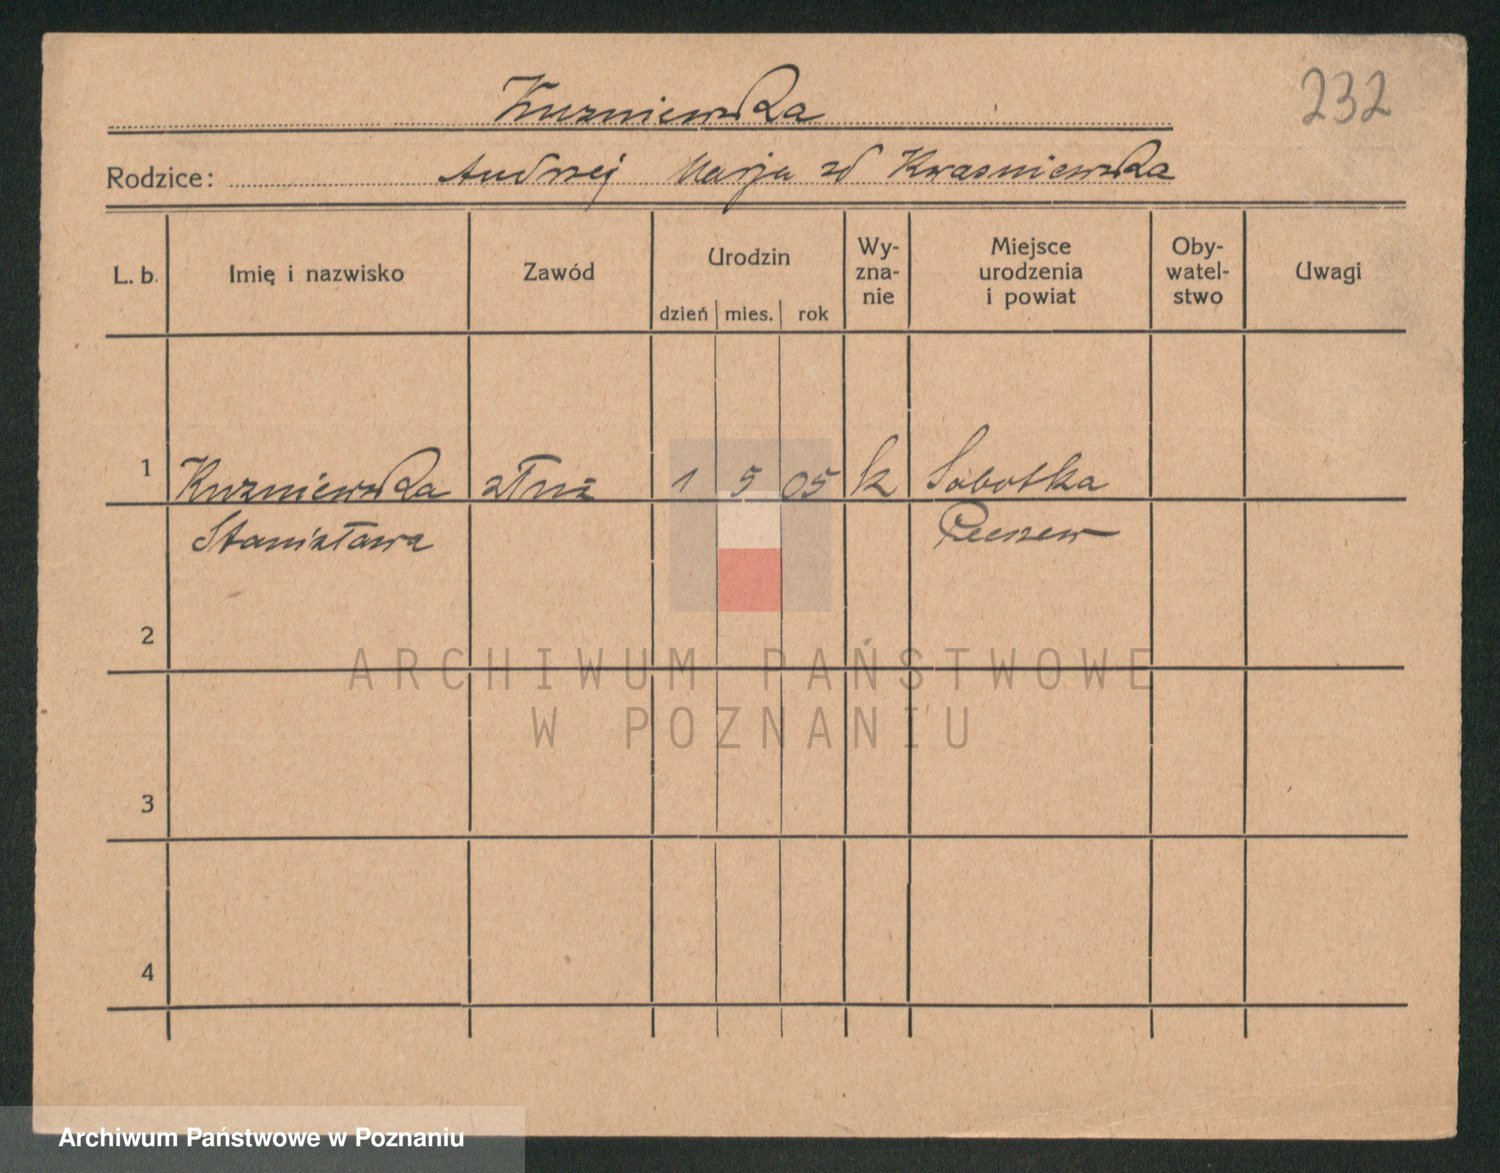 Kuzniewska
232
Rodzice: Andrzej Marja zd Kwasniewska
L. b. Imię i nazwisko Zawód Urodzin dzień mies. rok Wy-zna-nie Miejsce urodzenia i powiat Oby-watel-stwo Uwagi
1 Kuzniewska służ 1 5 05 k Sobotka
Stanisława Pleszew
2
3
4
ARCHIWUM PAŃSTWOWE
W POZNANIU
Archiwum Państwowe w Poznaniu